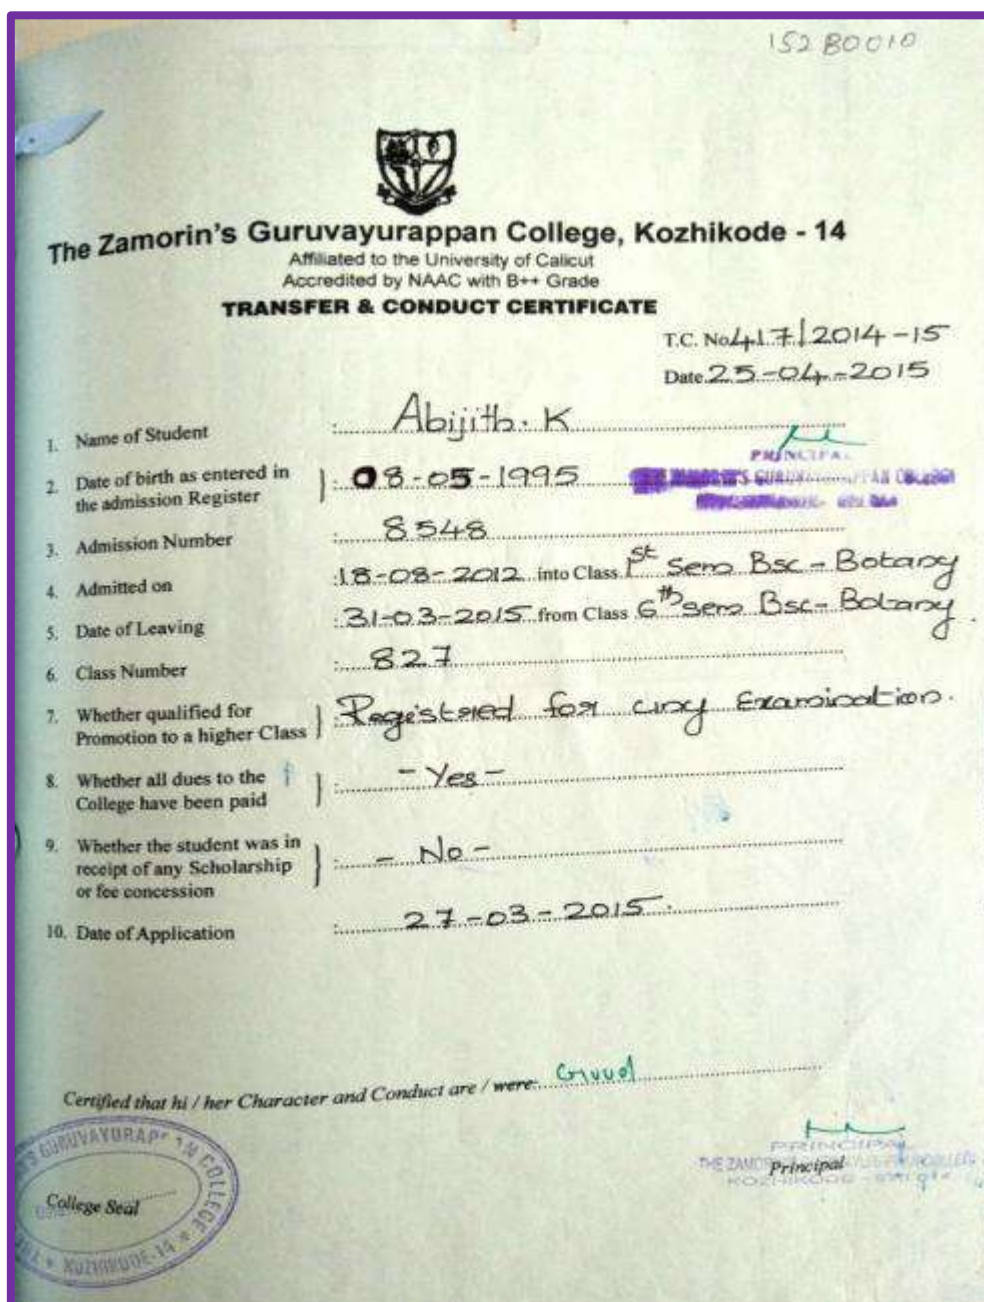 152B0010
The Zamorin's Guruvayurappan College, Kozhikode - 14
Affiliated to the University of Calicut
Accredited by NAAC with B++ Grade
TRANSFER & CONDUCT CERTIFICATE
T.C. No 417/2014-15
Date 25-04-2015
1. Name of Student : Abijith. K
PRINCIPAL
2. Date of birth as entered in the admission Register } : 08-05-1995
3. Admission Number : 8548
4. Admitted on : 18-08-2012 into Class 1st Sem Bsc - Botany
5. Date of Leaving : 31-03-2015 from Class 6th Sem Bsc - Botany.
6. Class Number : 827
7. Whether qualified for Promotion to a higher Class } : Registered for University Examination.
8. Whether all dues to the College have been paid } : - Yes -
9. Whether the student was in receipt of any Scholarship or fee concession } : - No -
10. Date of Application : 27-03-2015.
Certified that hi / her Character and Conduct are / were: Good
PRINCIPAL
Principal
GURUVAYURAPPAN COLLEGE
College Seal
KOZHIKODE-14